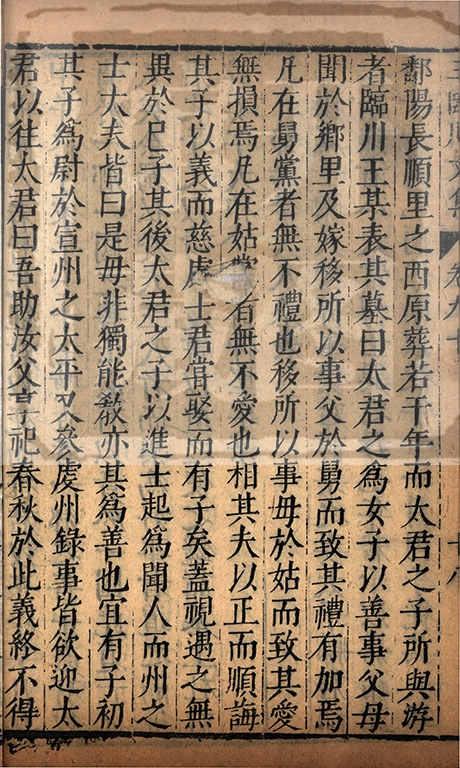 王臨川文集 卷九十 十八
鄱陽長順里之西原葬若干年而太君之子所與游
者臨川王某表其墓曰太君之為女子以善事父母
聞於鄉里及嫁移所以事父於舅而致其禮有加焉
凡在舅黨者無不禮也移所以事母於姑而致其愛
無損焉凡在姑黨者無不愛也相其夫以正而順誨
其子以義而慈處士君嘗娶而有子矣蓋視遇之無
異於己子其後太君之子以進士起為聞人而州之
士大夫皆曰是母非獨能教亦其為善也宜有子初
其子為尉於宣州之太平又參處州錄事皆欲迎太
君以往太君曰吾助汝父享祀春秋於此義終不得